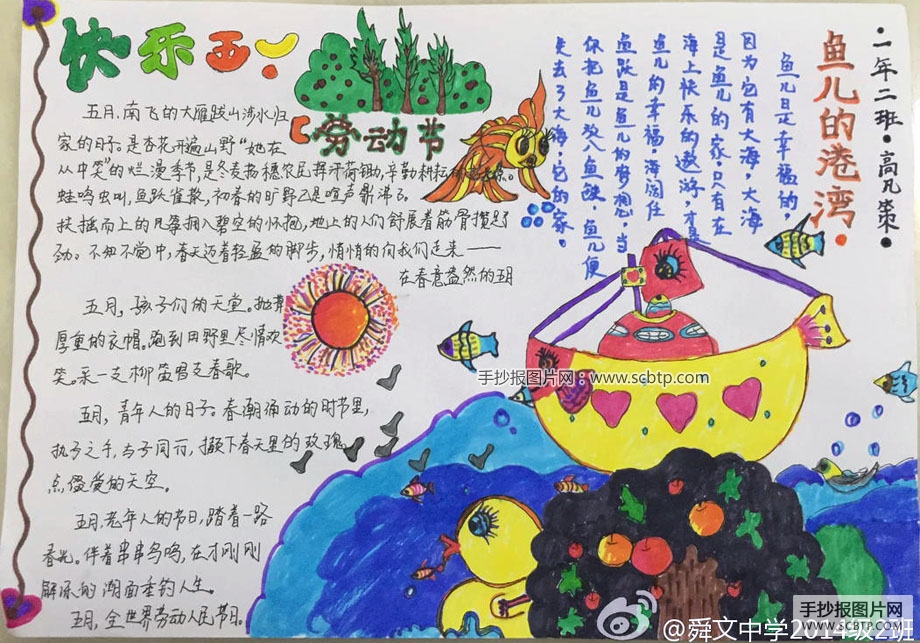 快乐五一
劳动节
五月,南飞的大雁跋山涉水归
家的日子。是杏花开遍山野“她在
丛中笑”的烂漫季节,是冬麦抽穗农民挥汗荷锄,辛勤耕耘
蛙鸣虫叫,鱼跃雀聚,初春的旷野已是喧声鼎沸了。
扶摇而上的风筝拥入碧空的怀抱,地上的人们舒展着筋骨攒足了
劲。不知不觉中,春天迈着轻盈的脚步,悄悄的向我们走来——
在春意盎然的五月
五月,孩子们的天堂。抛弃
厚重的衣帽。跑到田野里尽情欢
笑。采一支柳笛唱支春歌。
五月,青年人的日子。春潮涌动的时节里,
执子之手,与子同行,撷下春天里的玫瑰
点缀爱的天空。
五月,老年人的节日,踏着一路
春光。伴着串串鸟鸣,在才刚刚
解冻的湖面垂钓人生。
五月,全世界劳动人民节日。
二年二班·高凡策·
鱼儿的港湾
鱼儿是幸福的,
因为它有大海,大海
是鱼儿的家,只有在
海上快乐的遨游,才是
鱼儿的幸福。海阔任
鱼跃是鱼儿的梦想,当
你把鱼儿放入鱼缸,鱼儿便
失去了大海,它的家。
手抄报图片网:www.scbtp.com
@舜文中学2014级2班
手抄报图片网
WWW.SCBTP.COM